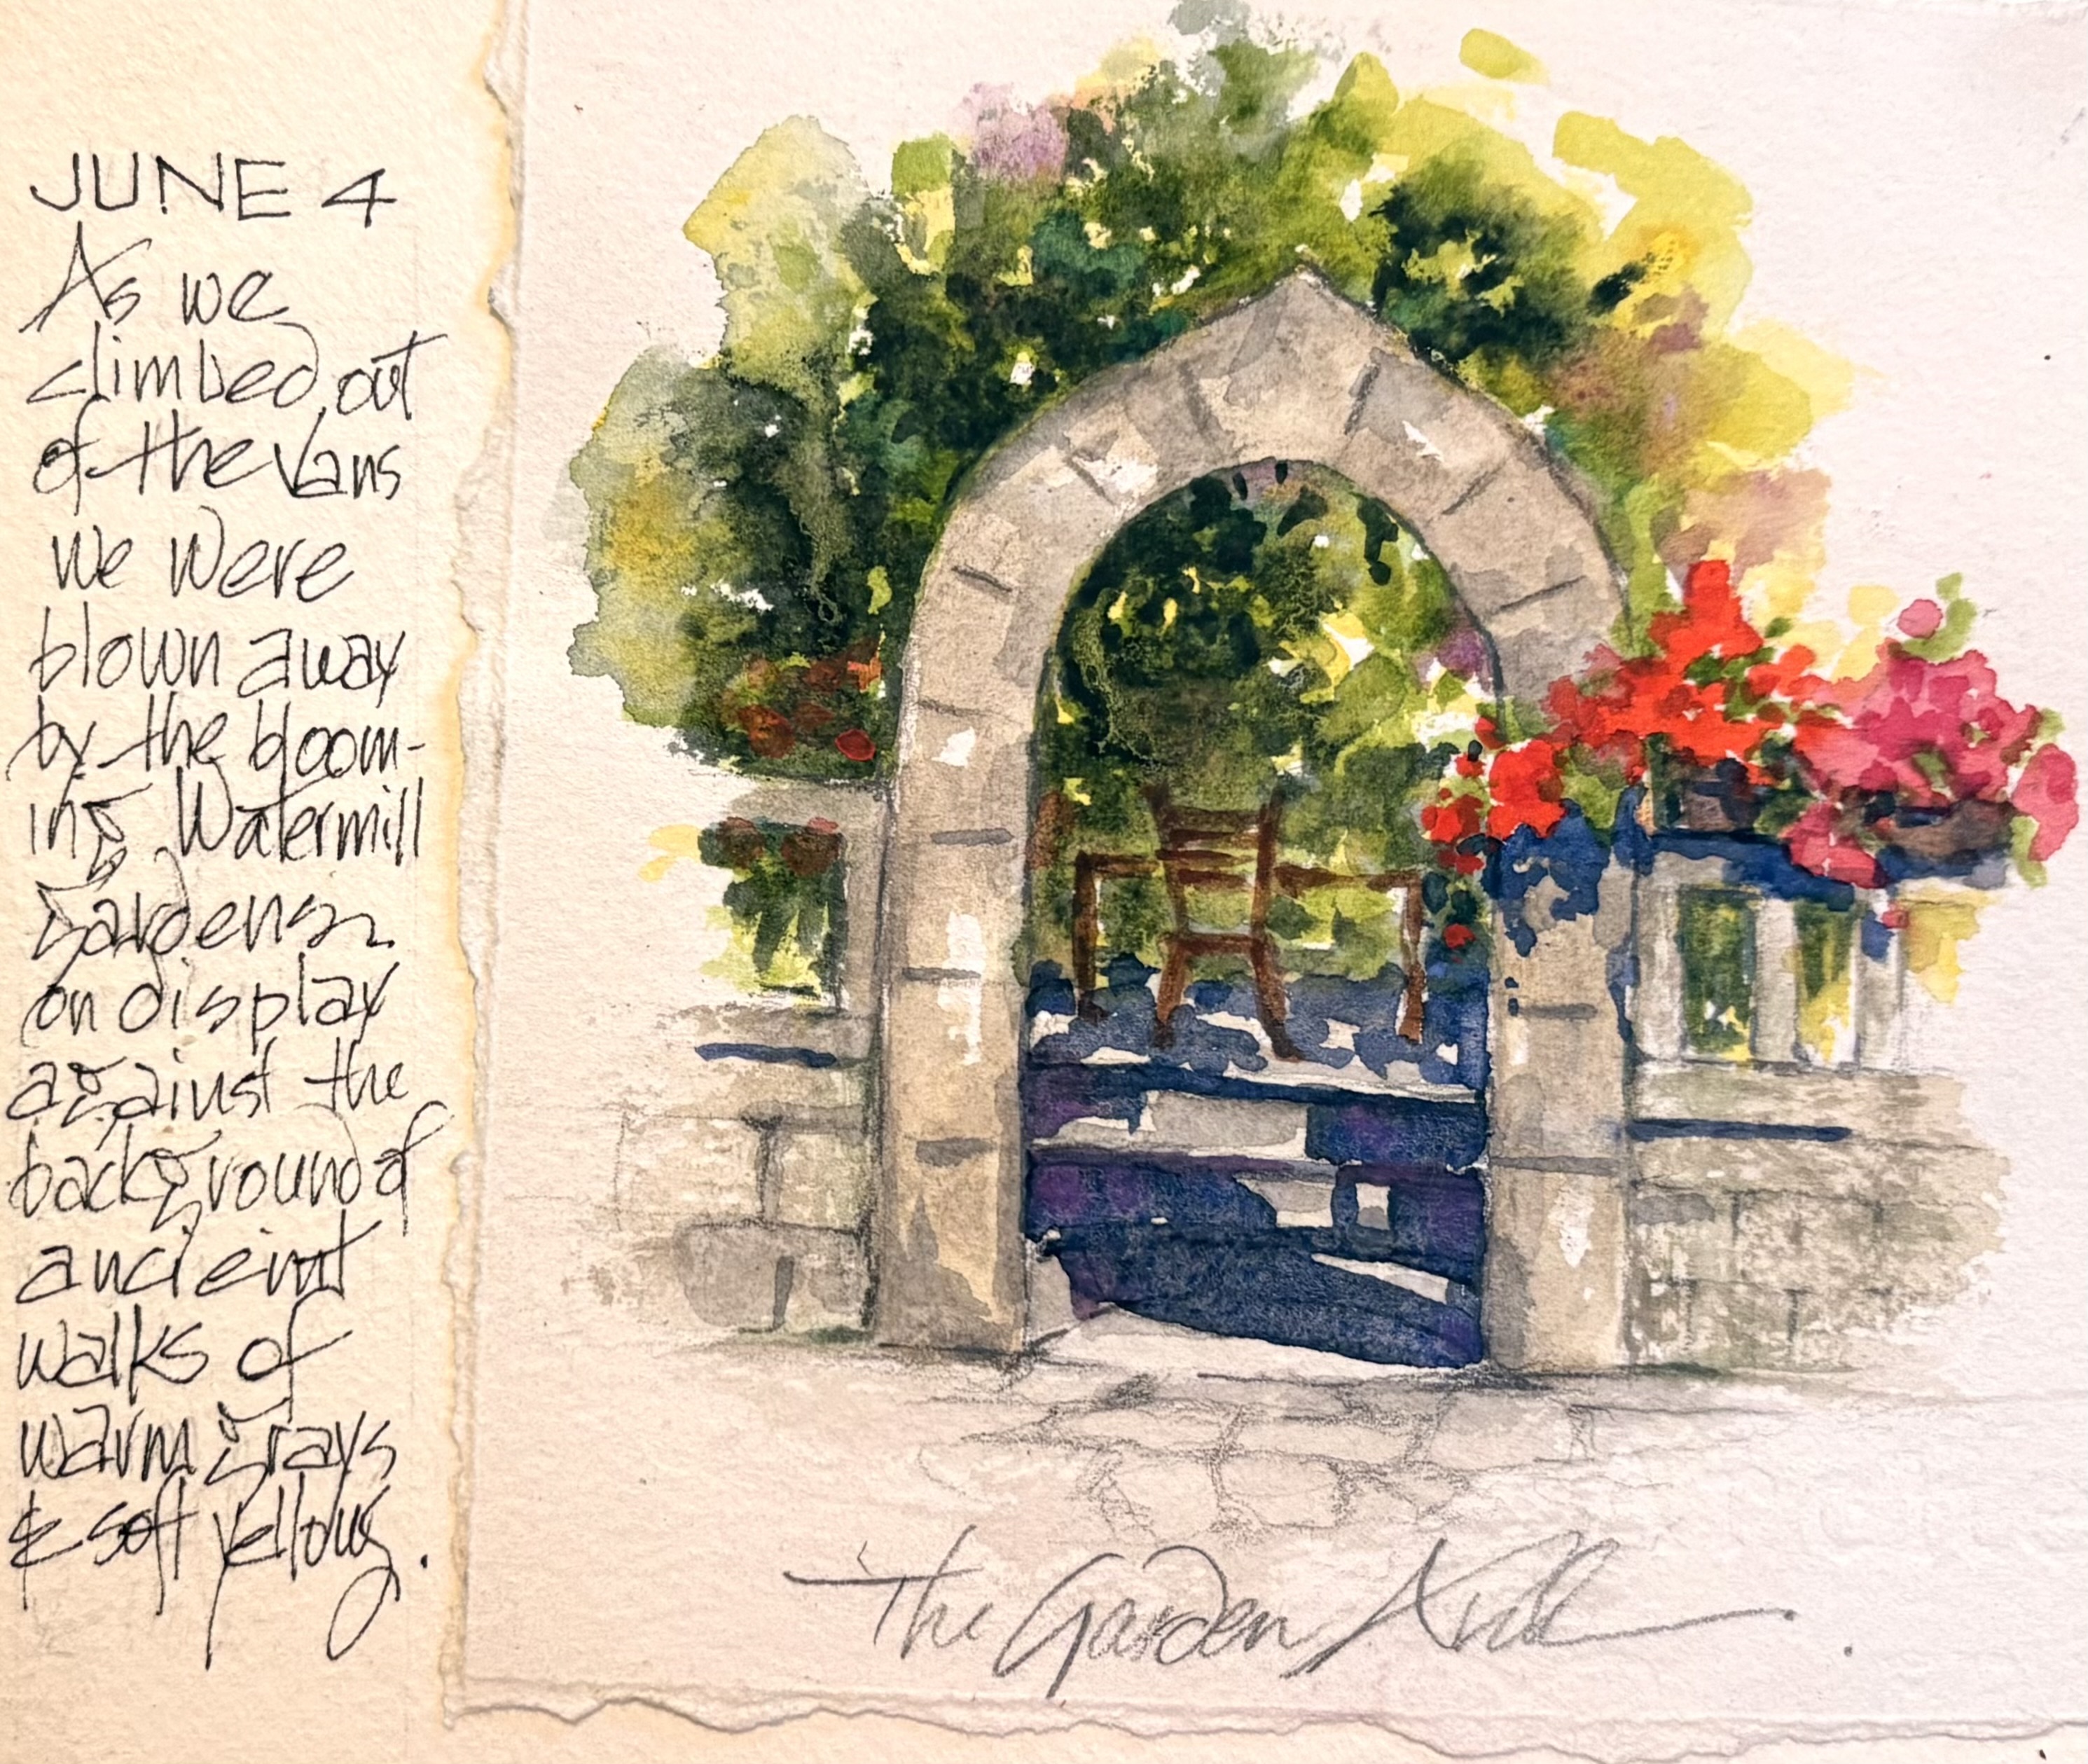 JUNE 4
As we
climbed out
of the Vans
we were
blown away
by the bloom-
ing Watermill
Gardens
on display
against the
background of
ancient
walks of
warm grays
& soft yellows.
The Garden